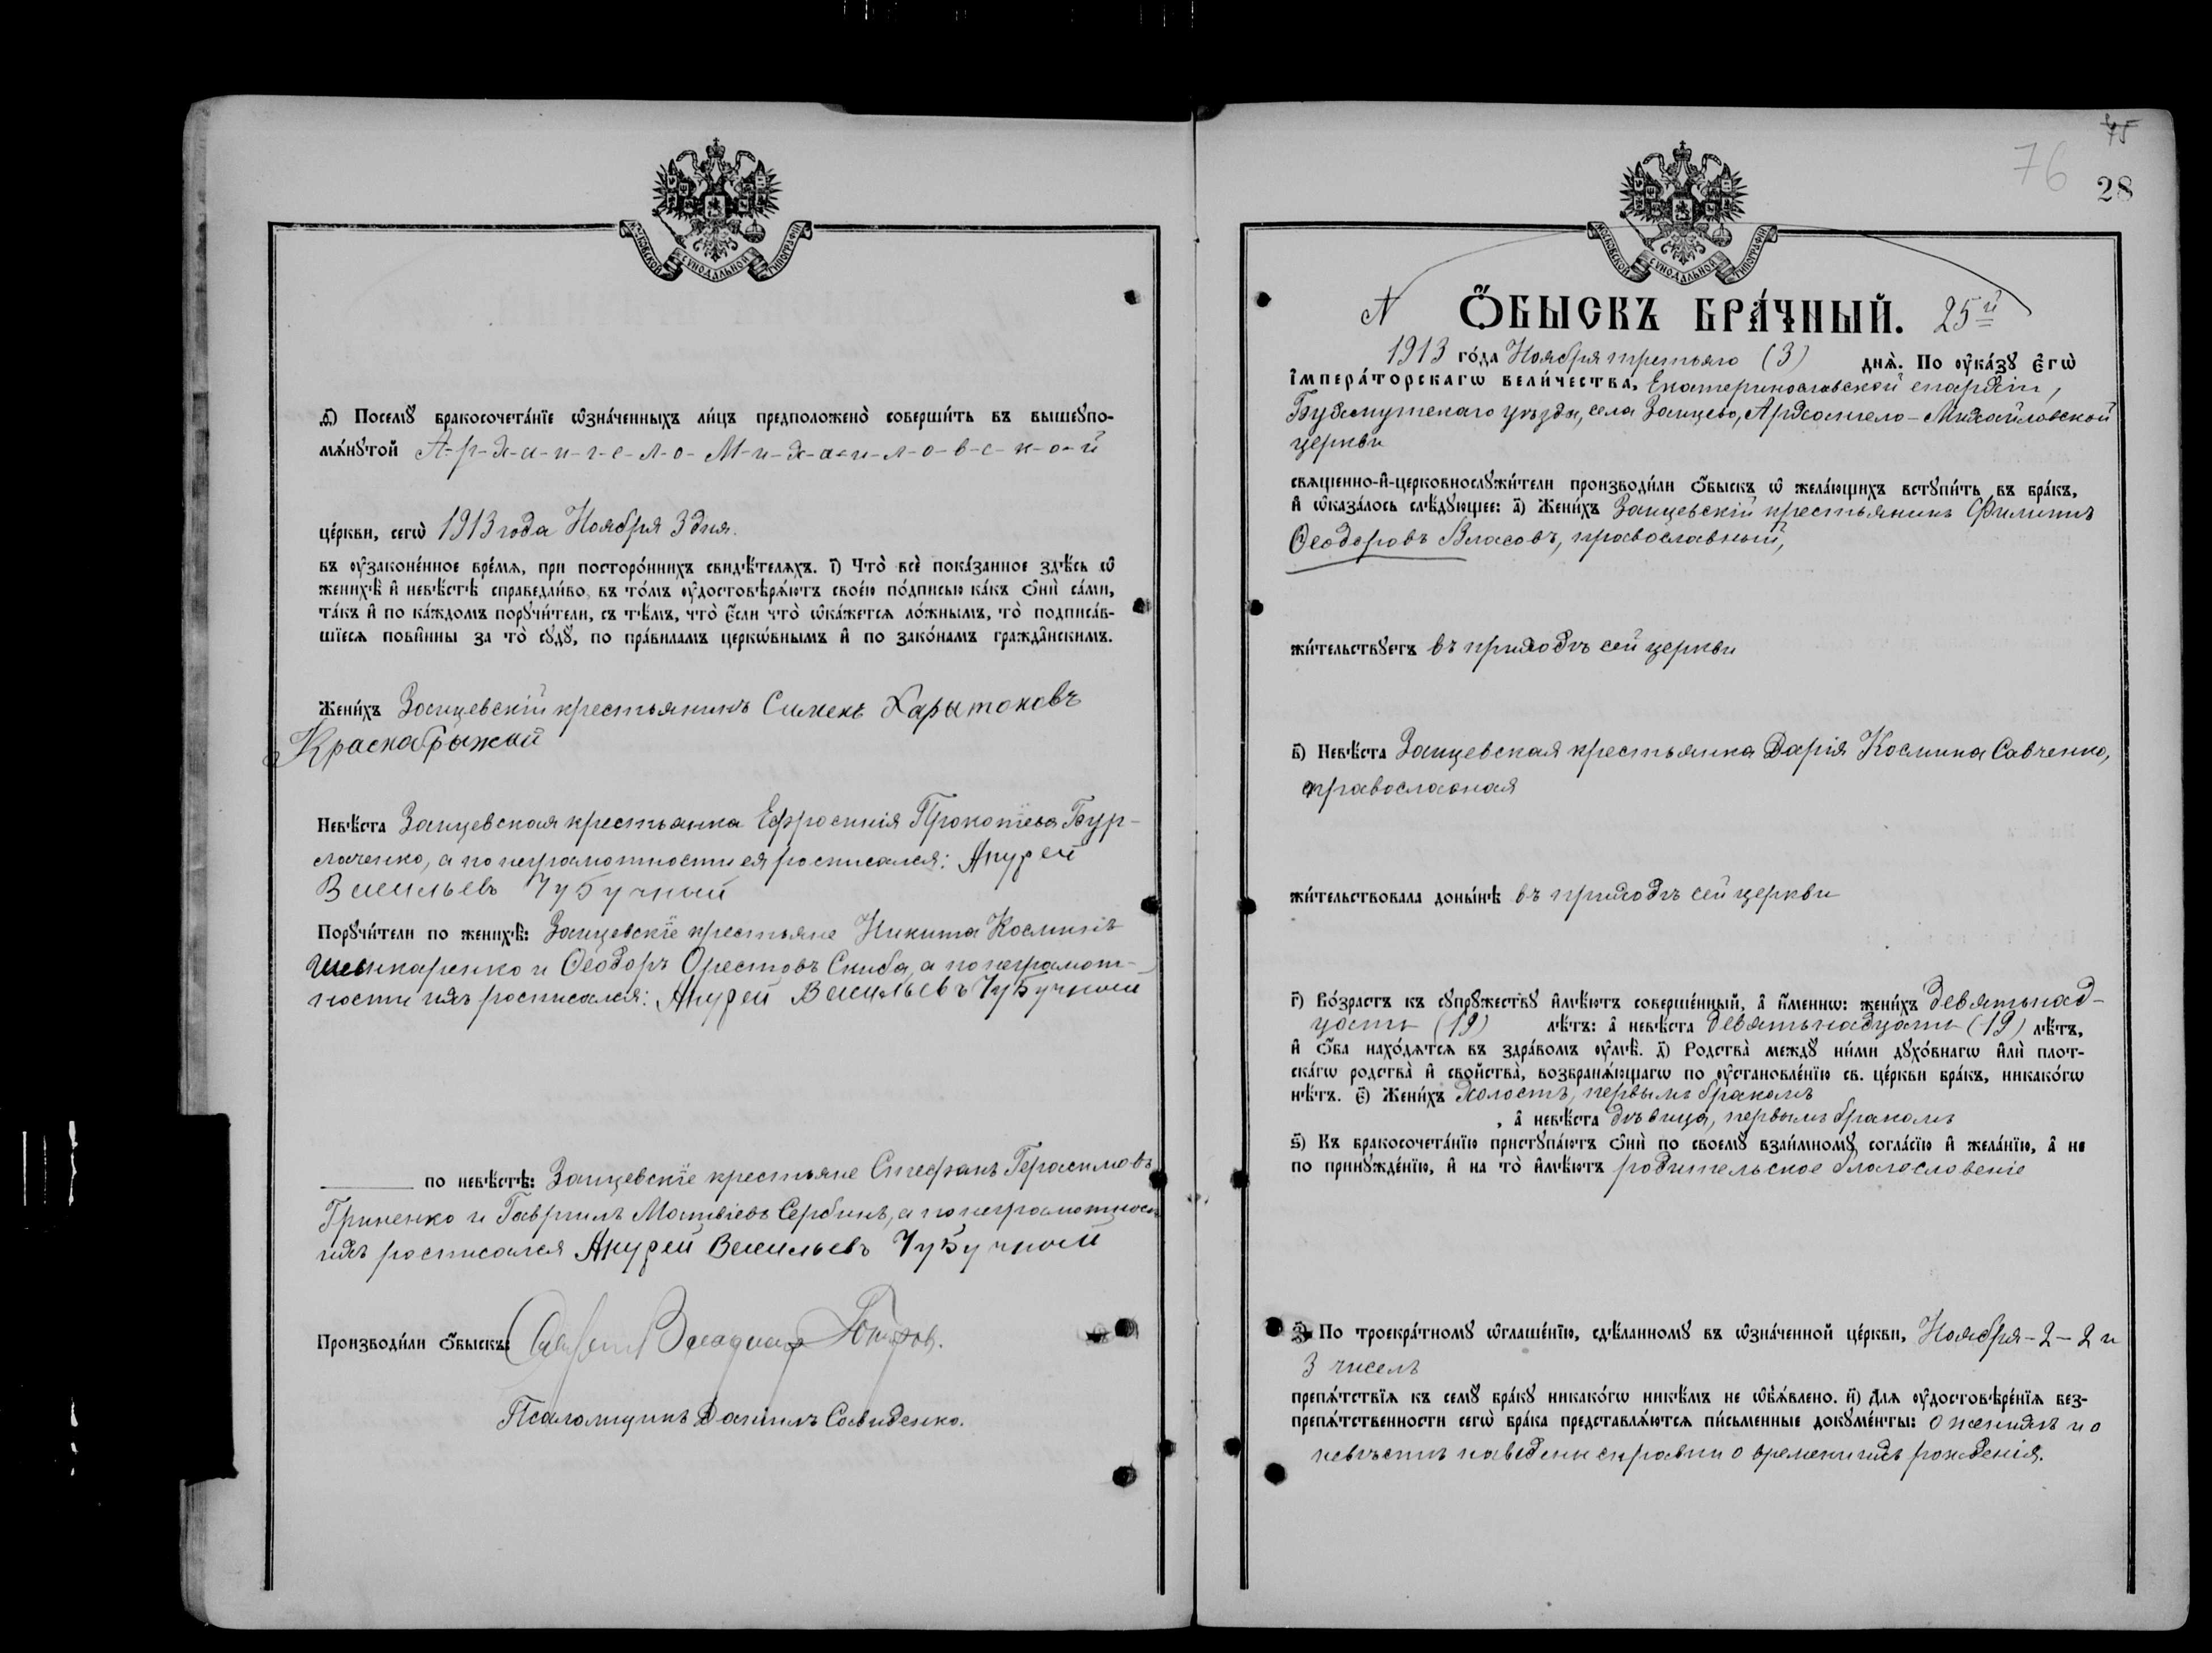 МОСКОВСКОЙ СѴНОДАЛЬНОЙ ТИПОГРАФІИ
ѳ҃) Посемꙋ̀ бракосочета́нїе ѡ҆зна́ченныхъ ли́цъ предположено̀ соверши́ть въ вышеꙋпо-
мѧ́нꙋтой А-р-х-а-н-г-е-л-о-М-и-х-а-и-л-о-в-с-к-о-й
це́ркви, сегѡ̀ 1913 года Ноября 3 дня.
въ ᲂу҆зако́ненное вре́мѧ, при посторо́ннихъ свидѣ́телѧхъ. і҃) Что̀ всѐ пока́занное здѣ́сь ѡ҆
женихѣ̀ и҆ невѣ́стѣ справедли́во, въ то́мъ ᲂу҆достовѣрѧ́ютъ свое́ю по́дписью ка́къ ѻ҆нѝ са́ми,
та́къ и҆ по ка́ждомъ порꙋчи́тели, съ тѣ́мъ, что̀ є҆́сли что̀ ѡ҆ка́жетсѧ ло́жнымъ, то̀ подписа́в-
шїесѧ пови́нны за то̀ сꙋдꙋ̀, по пра́виламъ церкѡ́внымъ и҆ по зако́намъ гражда̑нскимъ.
Жени́хъ Зайцевскій крестьянинъ Сименъ Харытоновъ
Краснабрыжай
Невѣ́ста Зайцевская крестьянка Ефросинія Прокопіева Бур-
лаченко, а по неграмотности ея росписался: Андрей
Васильевъ Чубучный
Порꙋчи́тели по женихѣ̀: Зайцевскіе крестьяне Никита Косминъ
Шенкаренко и Ѳеодоръ Орестовъ Скиба, а по неграмот-
ности ихъ росписался: Андрей Васильевъ Чубучный
по невѣ́стѣ: Зайцевскіе крестьяне Стефанъ Герасимовъ
Гриненко и Гавріилъ Матвіевъ Сербинъ, а по неграмотности
ихъ росписался Андрей Васильевъ Чубучный
Производи́ли ѻ҆́быскъ:
Псаломщикъ Даніилъ Савиденко.
75
76
28
МОСКОВСКОЙ СѴНОДАЛЬНОЙ ТИПОГРАФІИ
N ѺБЫСКЪ БРА́ЧНЫЙ. 25й
1913 го́да Ноября третьяго (3) днѧ̀. По ᲂу҆ка́зꙋ Є҆гѡ̀
І҆мпера́торскагѡ вели́чества, Екатеринославской епархіи,
Бахмутскаго уѣзда, села Зайцево, Архангело-Михайловской
церкви
свѧщенно-и҆-церковнослꙋжи́тели производи́ли ѻ҆́быскъ ѡ҆ жела́ющихъ встꙋпи́ть въ бра́къ,
и҆ ѡ҆каза́лось слѣ́дꙋющее: а҃) Жени́хъ Зайцевскій крестьянинъ Филиппъ
Ѳеодоровъ Власовъ, православный,
жи́тельствꙋетъ въ приходѣ сей церкви
в҃) Невѣ́ста Зайцевская крестьянка Дарія Космина Савченко,
православная
жи́тельствовала доны́нѣ въ приходѣ сей церкви
г҃) Во́зрастъ къ сꙋпрꙋ́жествꙋ и҆мѣ́ютъ соверше́нный, а҆ и҆́меннѡ: жени́хъ девятьнад-
цать (19) лѣ́тъ: а҆ невѣ́ста девятьнадцать (19) лѣ́тъ,
и҆ ѻ҆́ба нахо́дѧтсѧ въ здра́вомъ ᲂу҆мѣ̀. д҃) Родства̀ междꙋ̀ ни́ми дꙋхо́внагѡ и҆лѝ плот-
ска́гѡ родства̀ и҆ свойства̀, возбранѧ́ющагѡ по ᲂу҆становле́нїю св. це́ркви бра́къ, никако́гѡ
нѣ́тъ. є҃) Жени́хъ холостъ, первымъ бракомъ
, а҆ невѣ́ста дѣвица, первымъ бракомъ
ѕ҃) Къ бракосочета́нїю пристꙋпа́ютъ ѻ҆нѝ по своемꙋ̀ взаи́мномꙋ согла́сїю и҆ жела́нїю, а҆ не
по принꙋжде́нїю, и҆ на то̀ и҆мѣ́ютъ родительское благословеніе
з҃) По троекра́тномꙋ ѡ҆глаше́нїю, сдѣ́ланномꙋ въ ѡ҆зна́ченной це́ркви, Ноября-2-2 и
3 чиселъ
препѧ́тствїѧ къ семꙋ̀ бра́кꙋ никако́гѡ никѣ́мъ не ѡ҆б̾ѧ́влено. и҃) Длѧ ᲂу҆достовѣре́нїѧ без-
препѧ́тственности сегѡ̀ бра́ка представлѧ́ютсѧ пи́сьменные докꙋме́нты: о женихѣ и о
невѣстѣ наведены справки о времени ихъ рожденія.